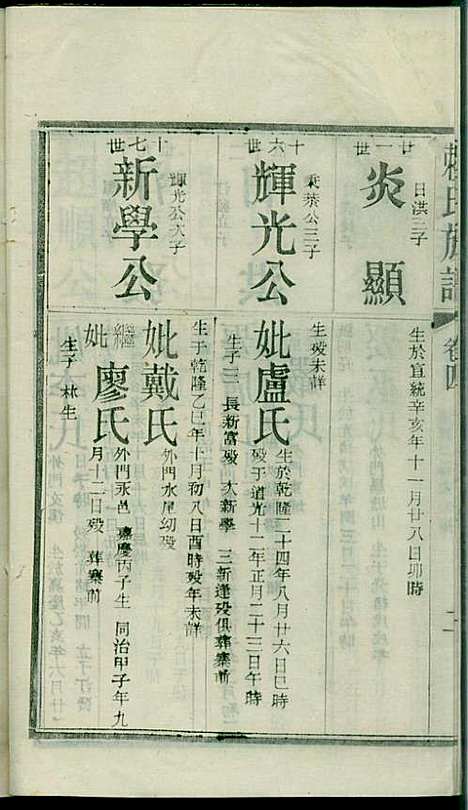 賴氏族譜 卷四
廿一世
炎顯
日淇三子
生於宣統辛亥年十一月廿八日卯時
十六世
輝光公
東葵公三子
生歿未詳
妣盧氏
生於乾隆二十四年八月廿六日巳時
歿于道光十二年正月二十三日午時
生子三 長新富歿 次新學 三新逢歿俱葬寨前
十七世
新學公
輝光公次子
生于乾隆乙巳年十月初八日酉時歿年未詳
妣戴氏
外門水尾幼歿
繼妣廖氏
外門永邑 嘉慶丙子生 同治甲子年九
月十二日歿 葬寨前
生子 林生